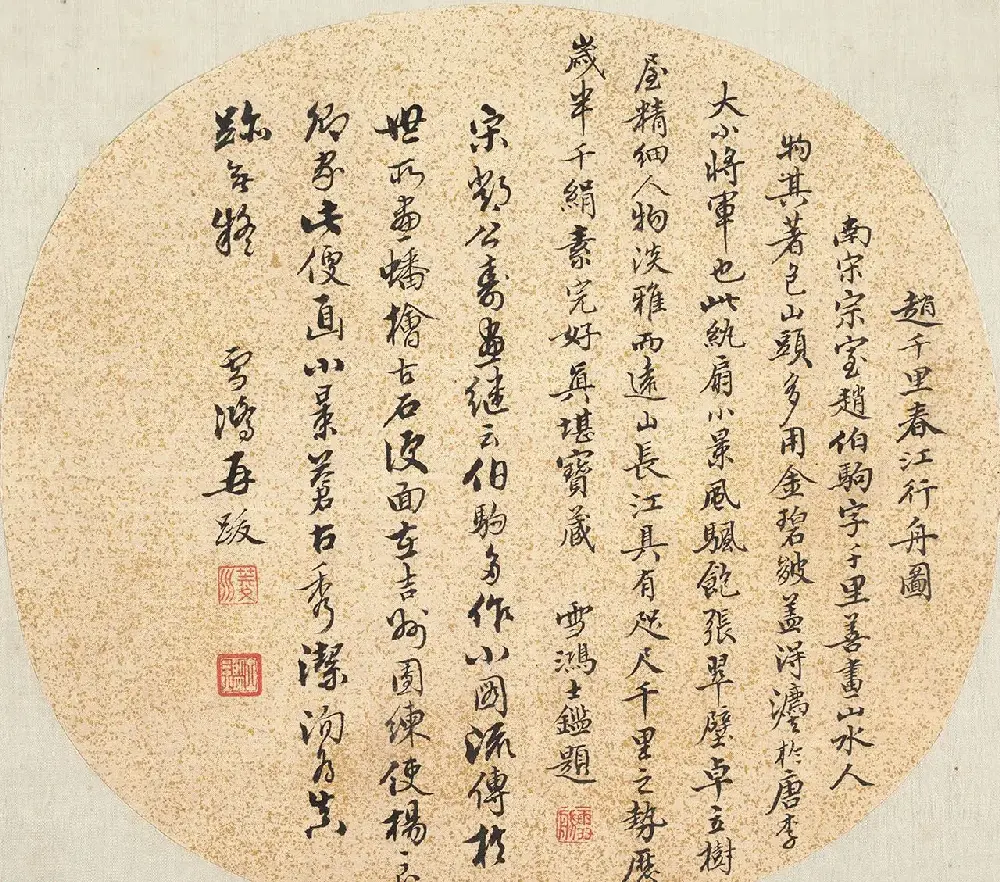 趙千里春江行舟圖
南宋宗室趙伯駒字千里善畫山水人
物其著色山頭多用金碧皴蓋淂灋於唐李
大小將軍也此紈扇小景風颿飽張翠壁卓立樹
屋精細人物淡雅而遠山長江具有咫尺千里之勢歷
歲半千絹素完好真堪寶藏 雪鴻士鑑題
宋鄧公壽畫繼云伯駒多作小圖流傳於
世所畫蟠檜古石便面在吉州團練使楊
卿家此便画小景蒼古秀潔洵為真
跡無疑 雪鴻再跋